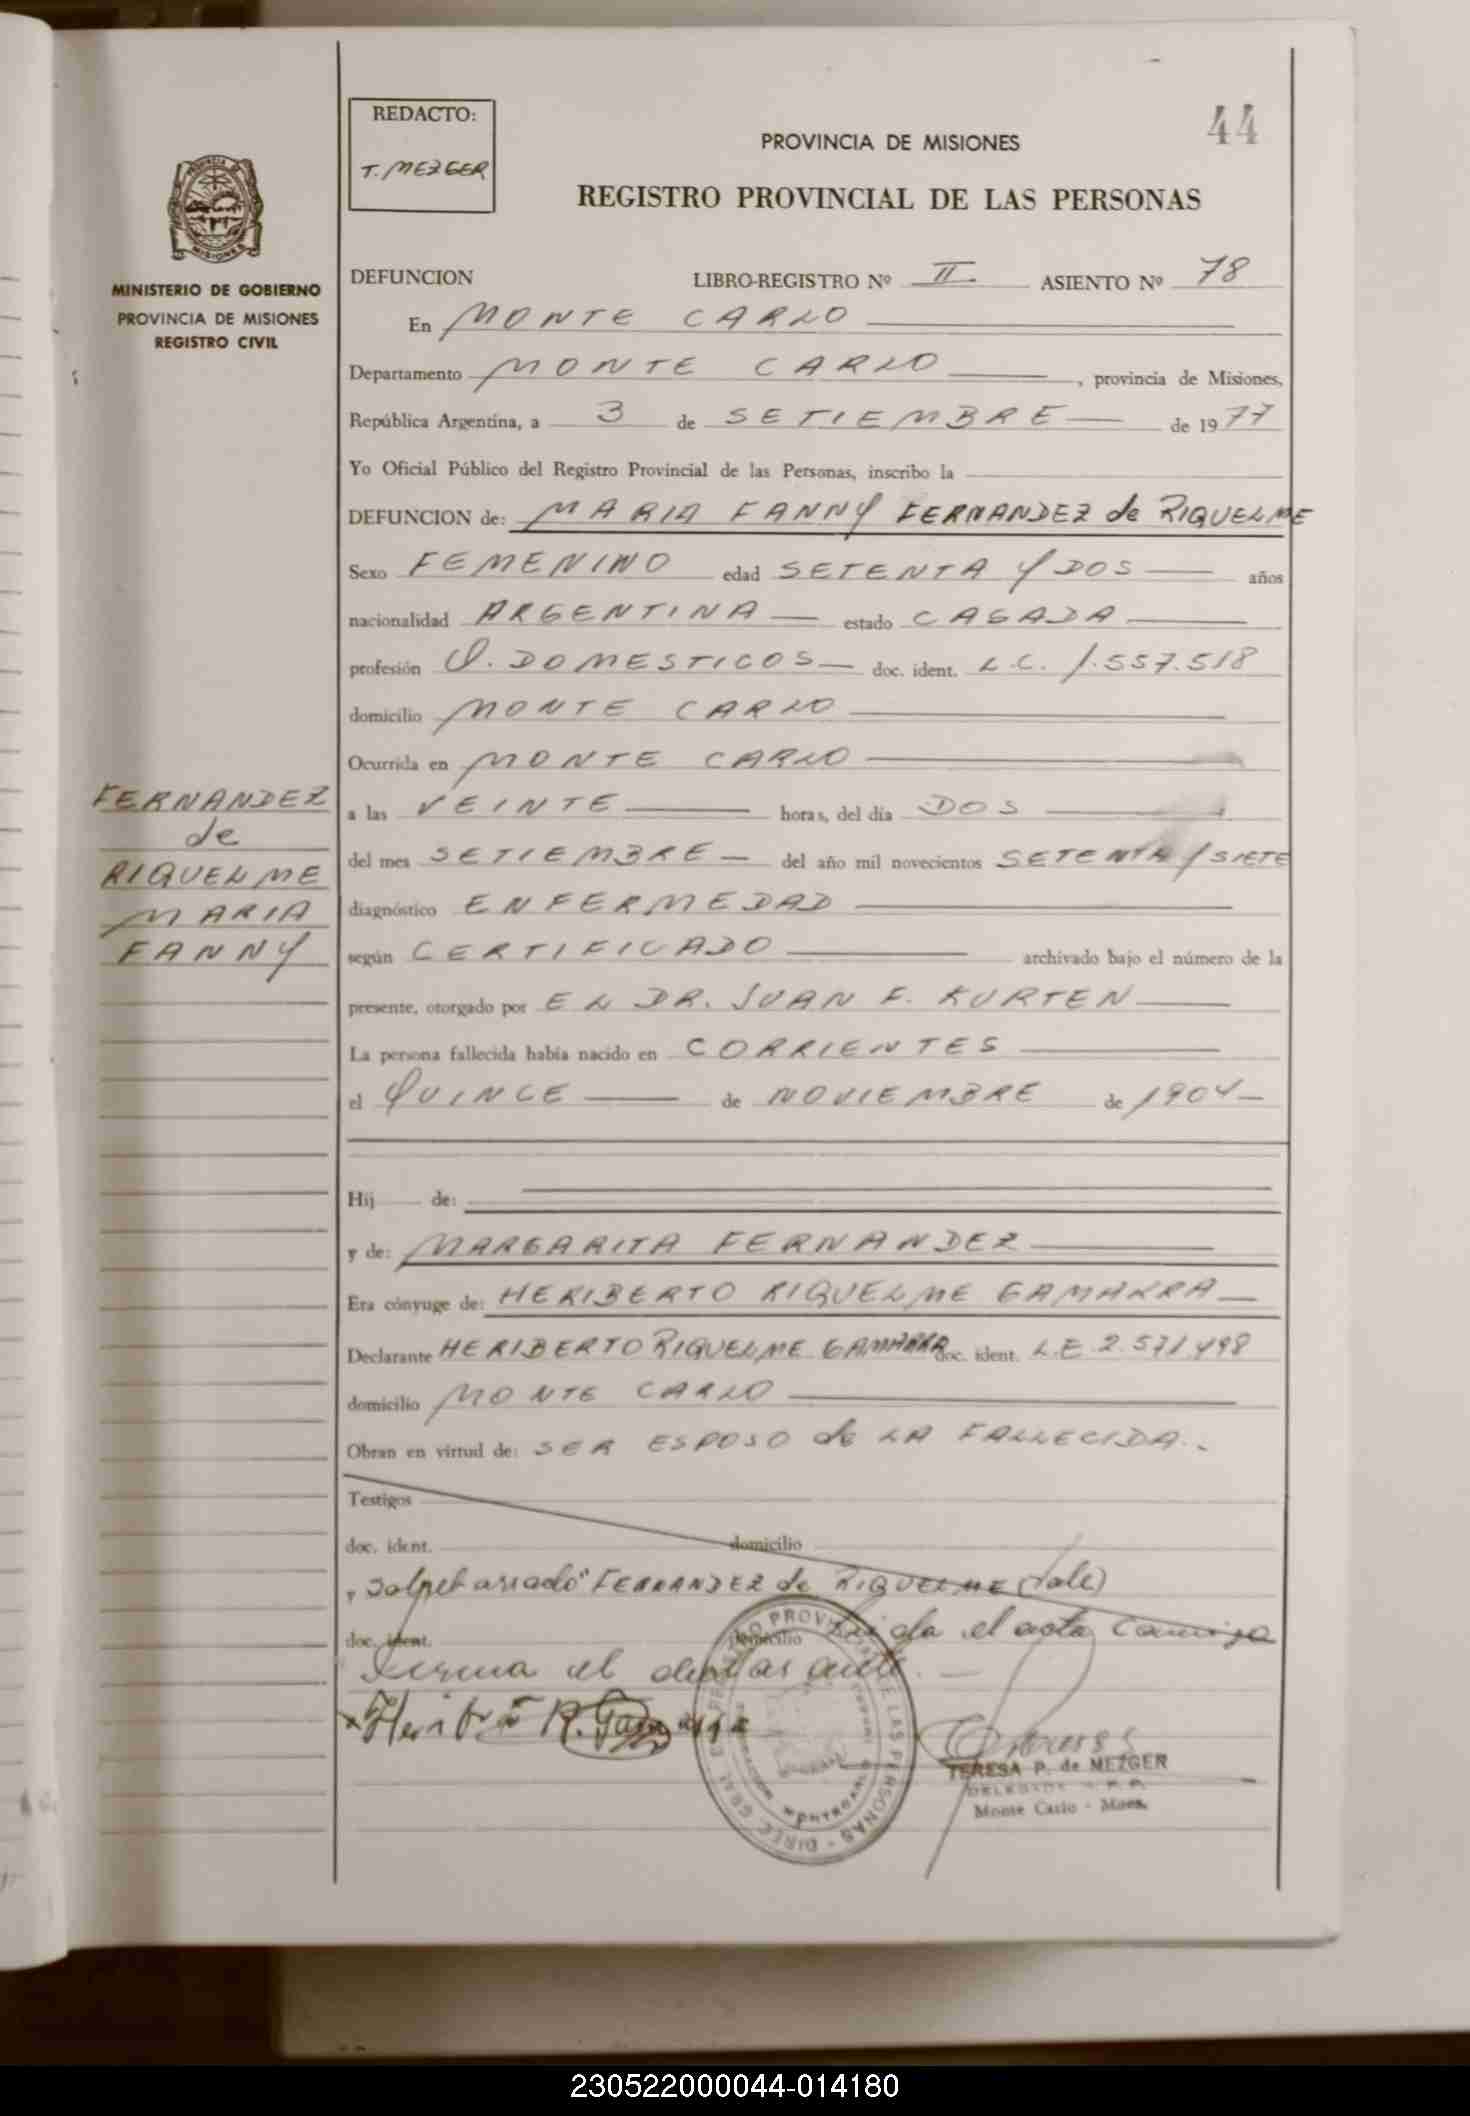 REDACTO:
T. MEZGER
44
PROVINCIA DE MISIONES
REGISTRO PROVINCIAL DE LAS PERSONAS
MINISTERIO DE GOBIERNO
PROVINCIA DE MISIONES
REGISTRO CIVIL
DEFUNCION LIBRO-REGISTRO Nº II ASIENTO Nº 78
En MONTE CARLO
Departamento MONTE CARLO, provincia de Misiones,
República Argentina, a 3 de SETIEMBRE de 1977
Yo Oficial Público del Registro Provincial de las Personas, inscribo la
DEFUNCION de: MARIA FANNY FERNANDEZ de RIQUELME
Sexo FEMENINO edad SETENTA Y DOS años
nacionalidad ARGENTINA estado CASADA
profesión Q. DOMESTICOS doc. ident. L.C. 1.557.518
domicilio MONTE CARLO
Ocurrida en MONTE CARLO
a las VEINTE horas, del día DOS
del mes SETIEMBRE del año mil novecientos SETENTA Y SIETE
diagnóstico ENFERMEDAD
según CERTIFICADO archivado bajo el número de la
presente, otorgado por EL DR. JUAN F. KURTEN
La persona fallecida había nacido en CORRIENTES
el QUINCE de NOVIEMBRE de 1904
FERNANDEZ
de
RIQUELME
MARIA
FANNY
Hij de:
y de: MARGARITA FERNANDEZ
Era cónyuge de: HERIBERTO RIQUELME GAMARRA
Declarante HERIBERTO RIQUELME GAMARRA doc. ident. L.E. 2.571.498
domicilio MONTE CARLO
Obran en virtud de: SER ESPOSO de LA FALLECIDA.
Testigos
doc. ident. domicilio
y "FERNANDEZ de RIQUELME (Vale)
doc. ident. domicilio Leida el acta
firma el
TERESA P. de MEZGER
Monte Carlo - Mnes.
230522000044-014180